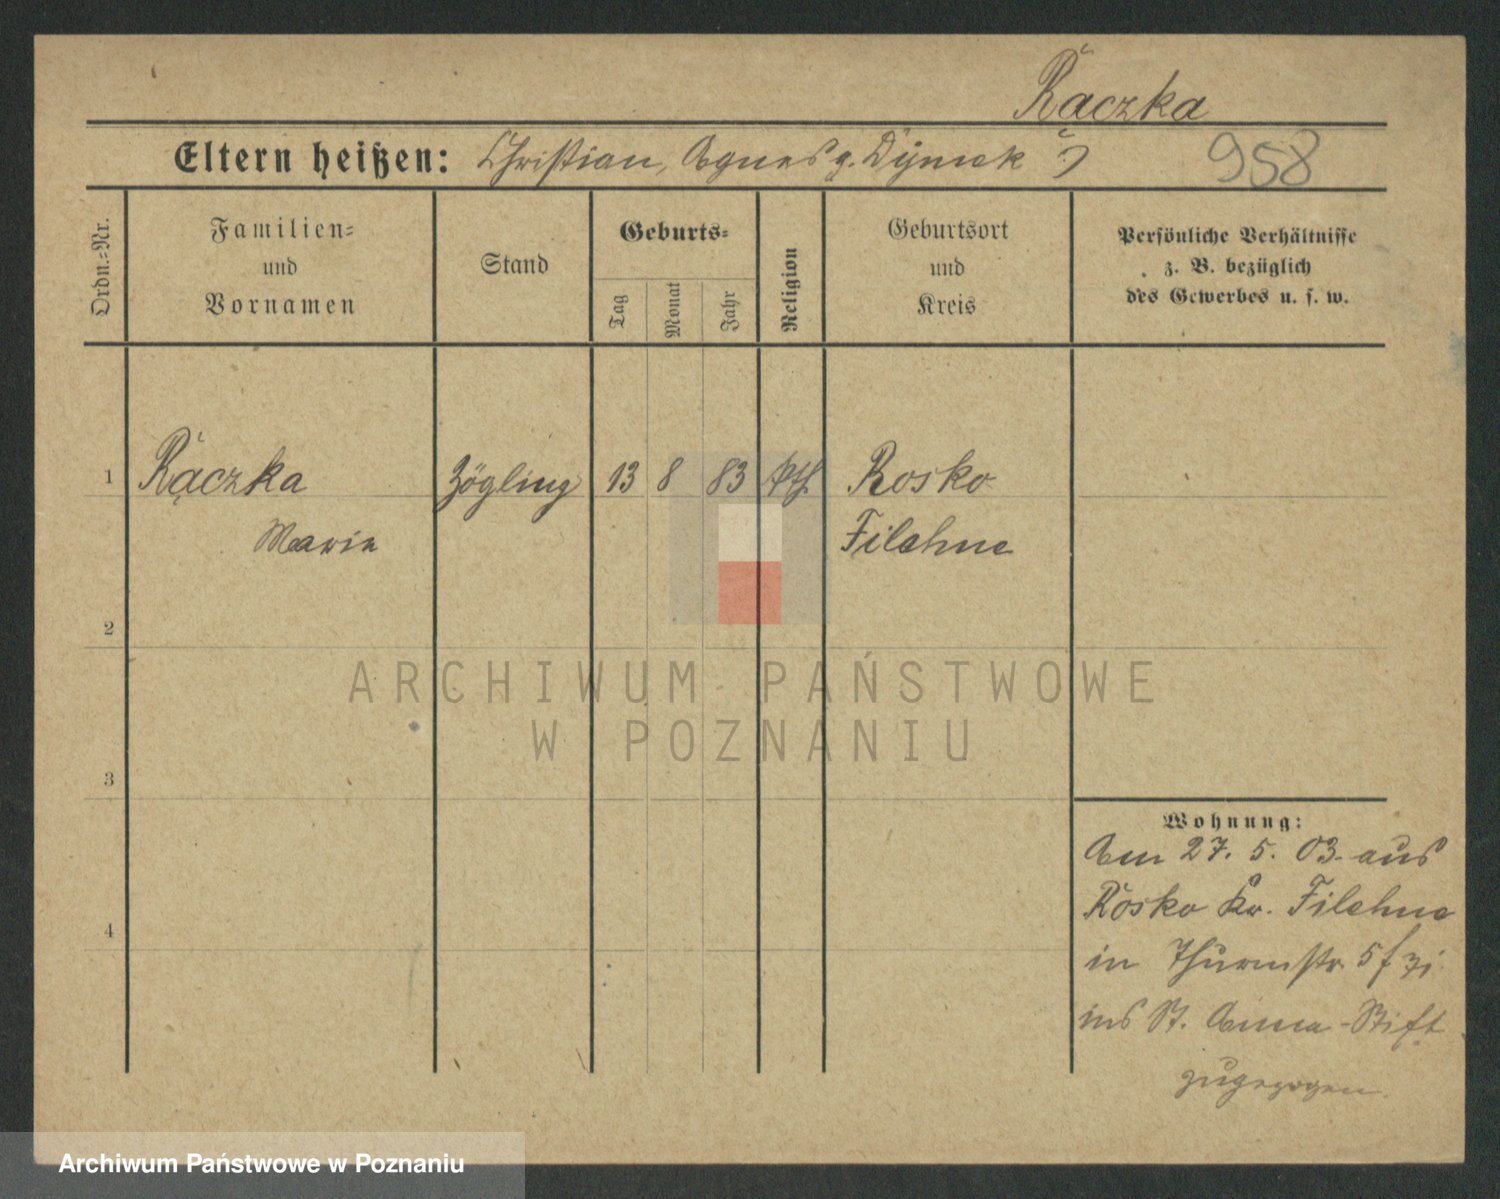 Raczka
Eltern heißen: Christian, Agnes g. Dymek
958
Ordn.-Nr.
Familien-
und
Vornamen
Stand
Geburts-
Tag
Monat
Jahr
Religion
Geburtsort
und
Kreis
Persönliche Verhältnisse
z. B. bezüglich
des Gewerbes u. s. w.
1
Rączka Zögling 13 8 83 kth. Rosko
Marie Filehne
2
ARCHIWUM PAŃSTWOWE
W POZNANIU
3
Wohnung:
Am 27. 5. 03. aus
Rosko Kr. Filehne
in Thurmstr. 5
4
ins St. Anna-Stift
zugezogen.
Archiwum Państwowe w Poznaniu